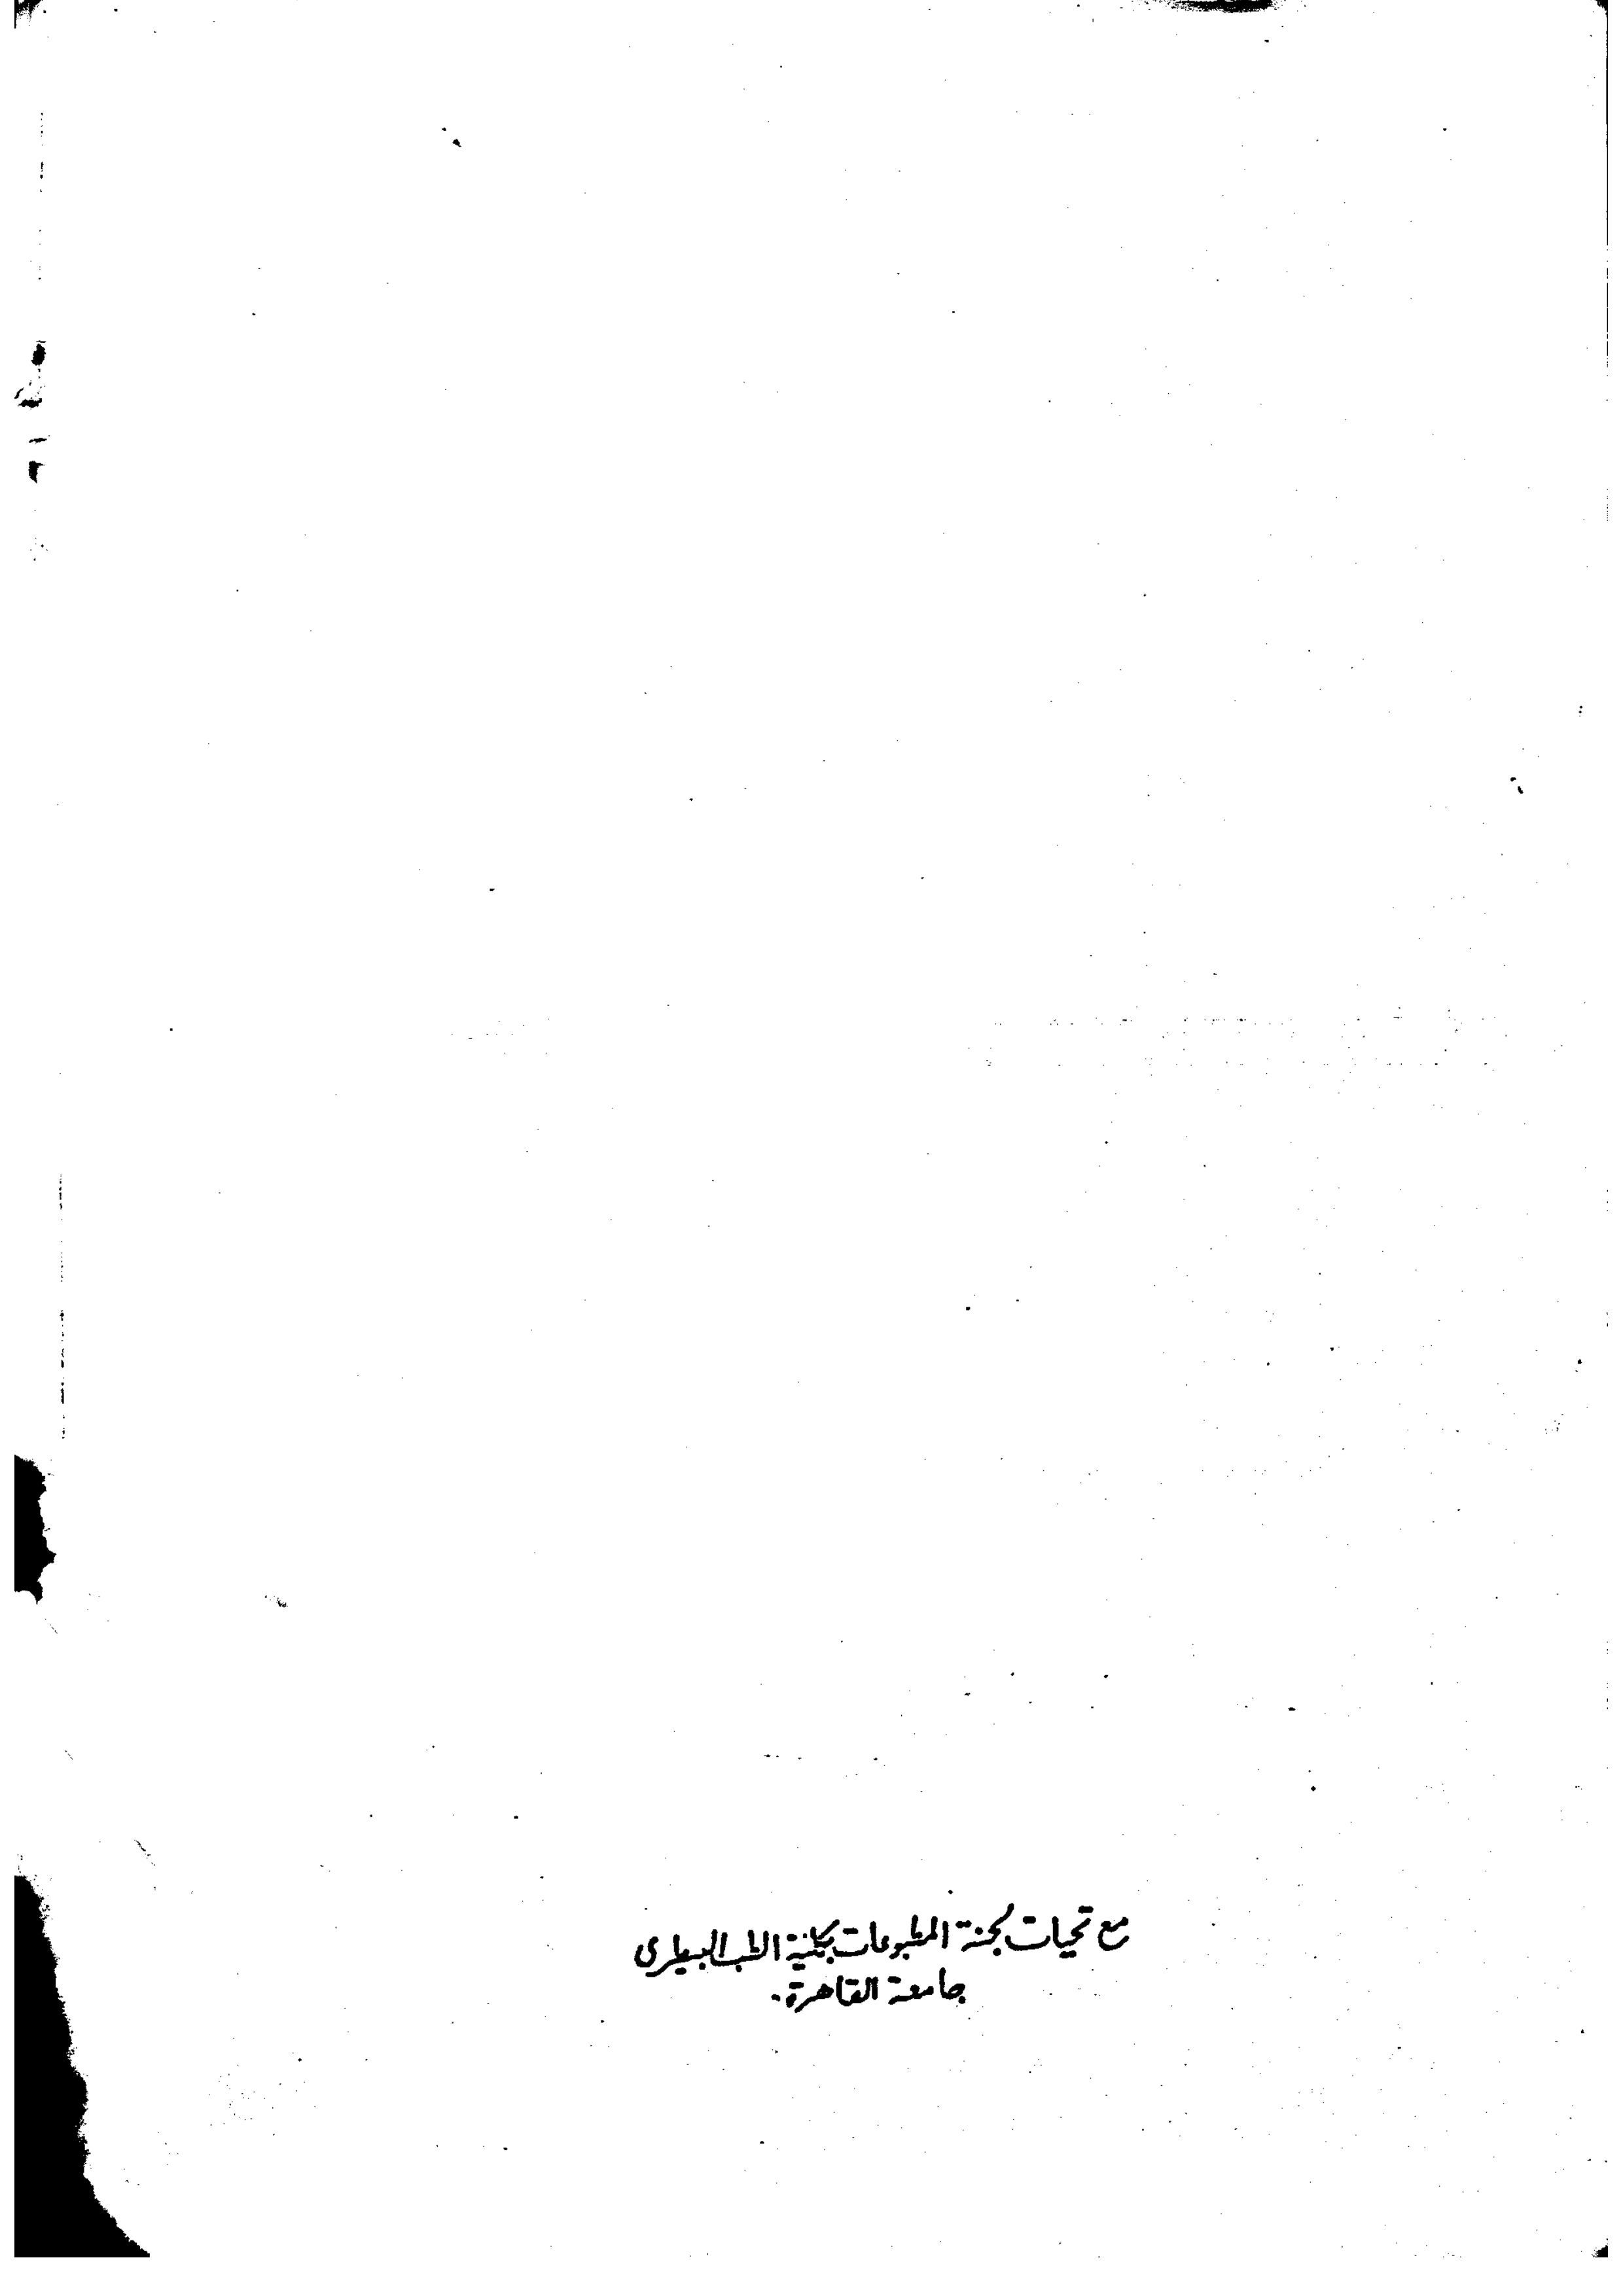 مع تحيات لجنة المطبوعات بكلية الطب البيطرى
جامعة القاهرة.